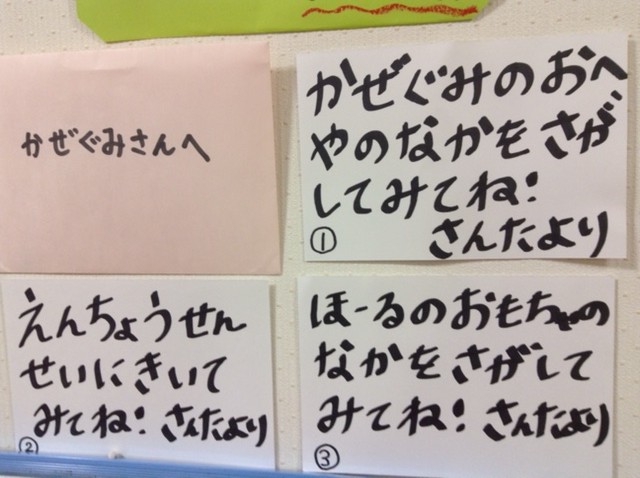 かぜぐみさんへ
かぜぐみのおへ
やのなかをさが
してみてね!
① さんたより
えんちょうせん
せいにきいて
みてね! さんたより
②
ほーるのおもちゃの
なかをさがして
みてね! さんたより
③